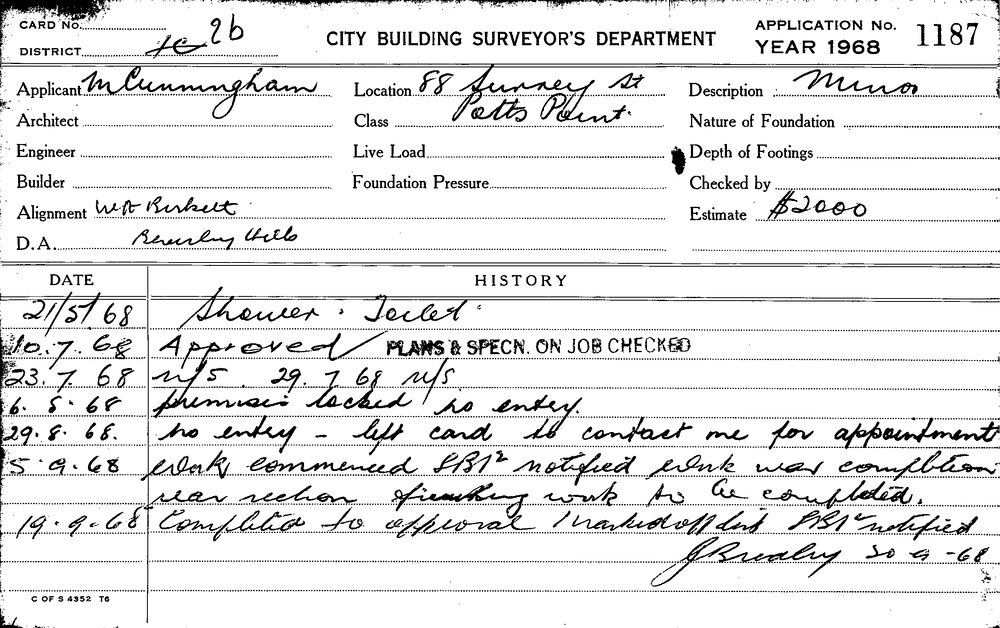 CARD No.
DISTRICT 2b
CITY BUILDING SURVEYOR'S DEPARTMENT
APPLICATION No. 1187
YEAR 1968
Applicant M Cunningham
Location 88 Surrey St
Potts Point.
Description Minor
Architect
Class
Nature of Foundation
Engineer
Live Load
Depth of Footings
Builder
Foundation Pressure
Checked by
Alignment Birkett
Estimate $2000
D.A. Beverley Hills
DATE HISTORY
21/5/68 Shower. Toilet.
10.7.68 Approved PLANS & SPECN. ON JOB CHECKED
23.7.68 N/S. 29.7.68 N/S.
6.8.68 premises locked no entry.
29.8.68. no entry - left card to contact me for appointment
5.9.68 Work commenced notified work near completion
rear section finishing work to be completed.
19.9.68 Completed to approval marked off list notified
20-9-68
C OF S 4352 T6